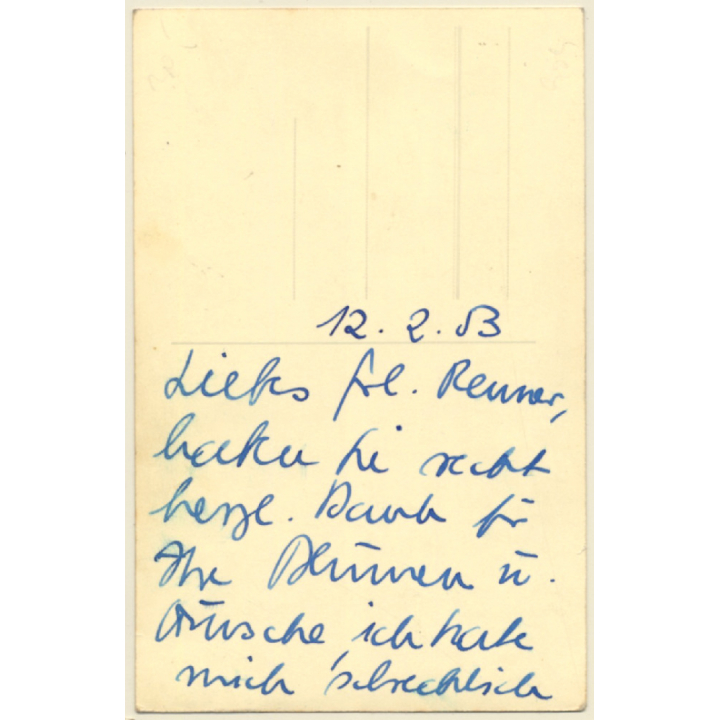 12. 2. 53
Liebes Frl. Renner,
haben Sie recht
herzl. Dank für
Ihre Blumen u.
Wünsche, ich habe
mich schrecklich